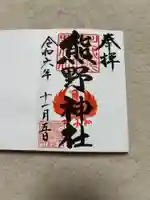 奉拝
熊野神社
令和六年
十一月五日